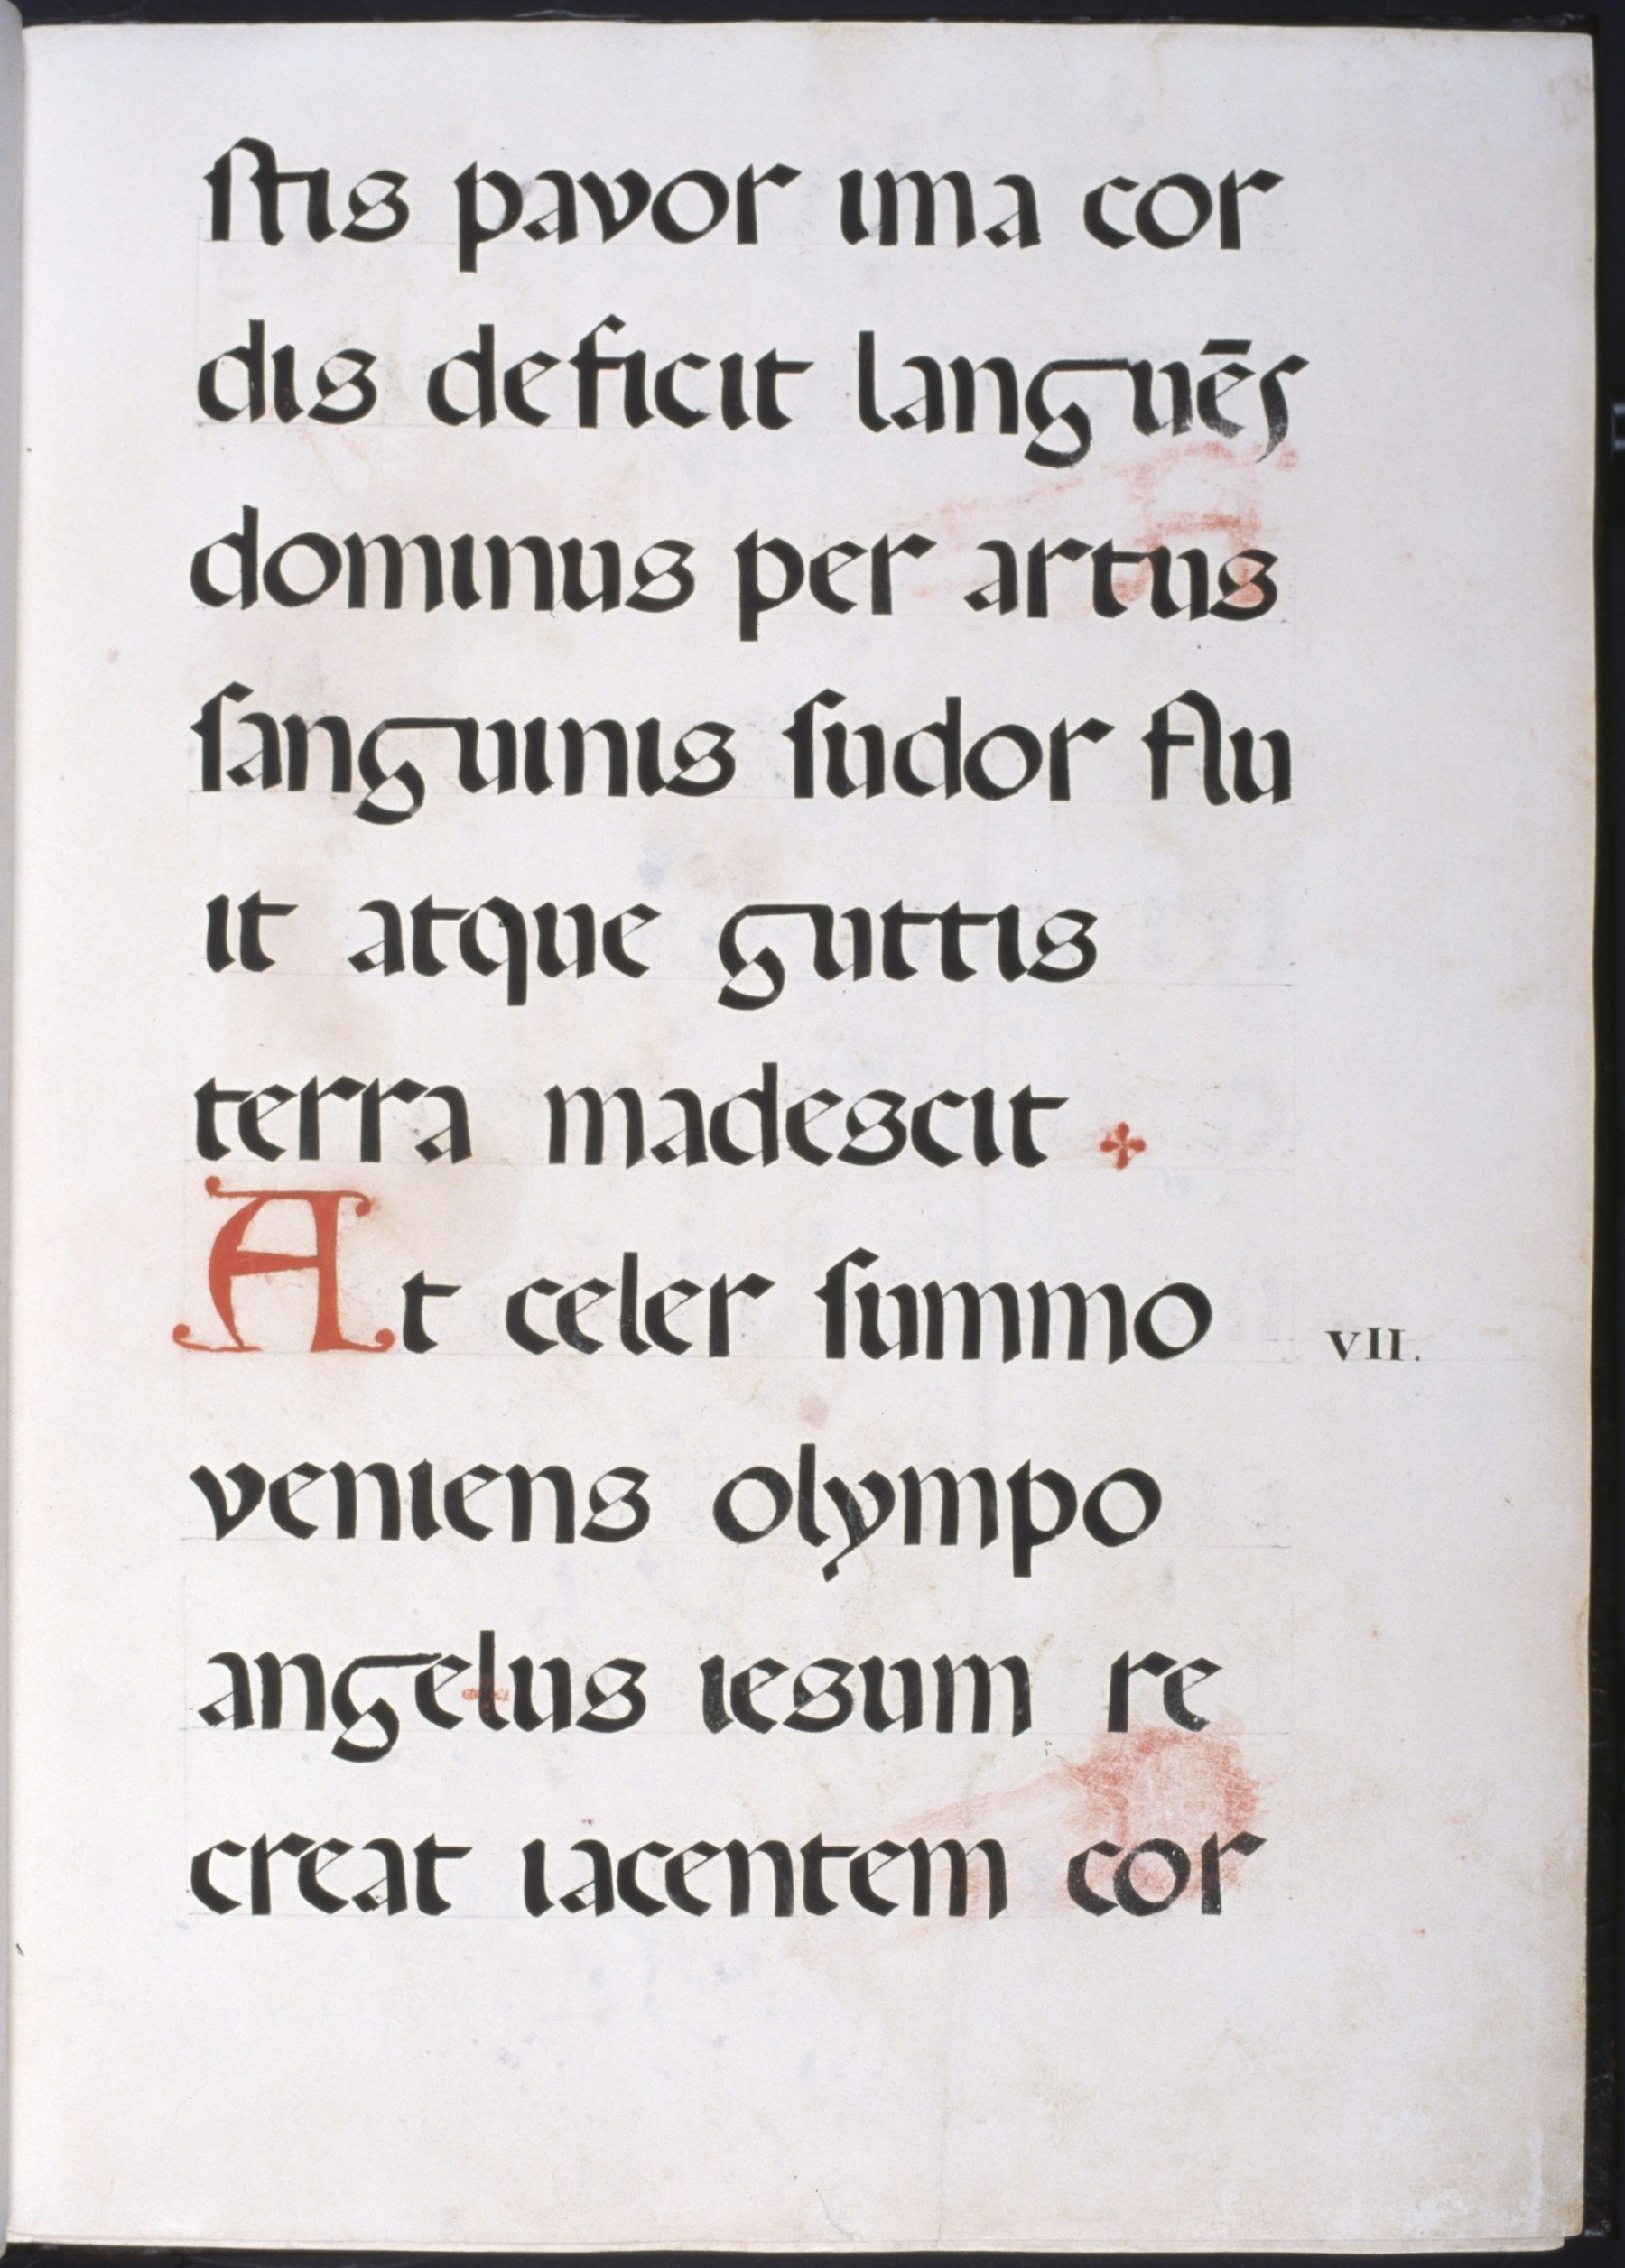 ſtis pavor ıma cor
dis deficit languēſ
dominus per artus
ſanguinis ſudor flu
it atque guttis
terra madescit ✣
At celer ſummo VII.
veniens olympo
angelus iesum re
creat iacentem cor